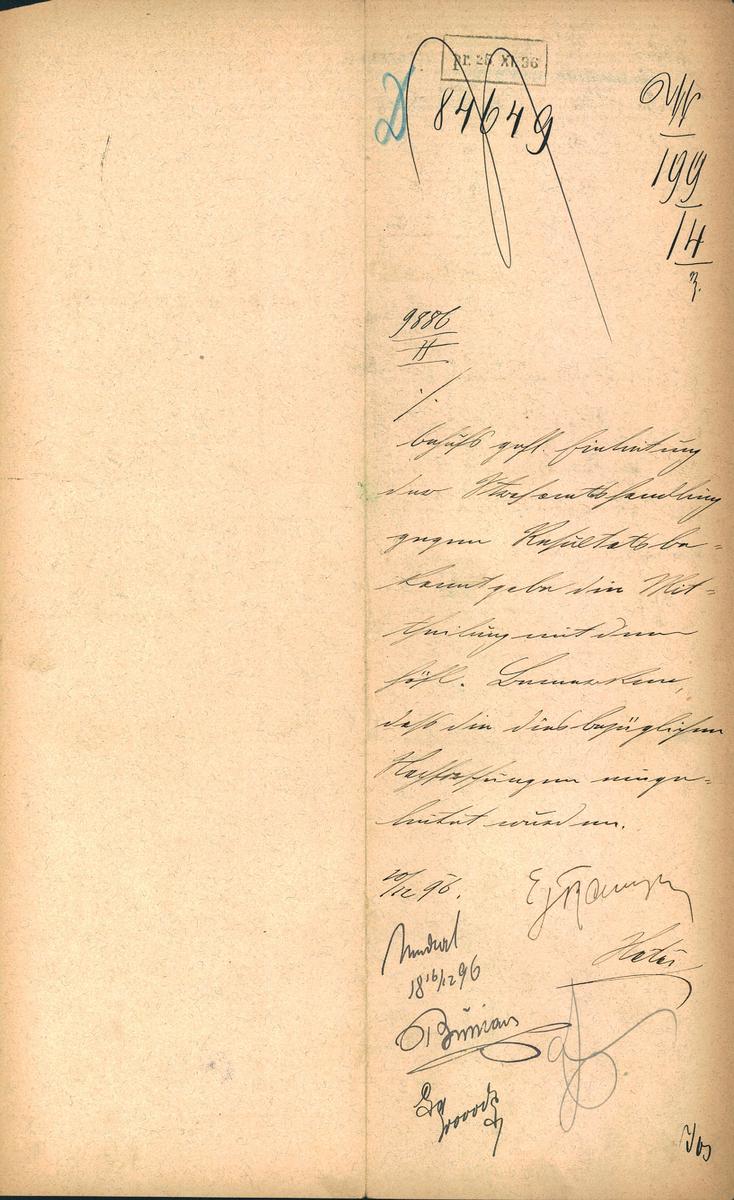 pr. 25 XI. 96
D 84649
199
14
9886
II
./.
behufs gefl. Einleitung
der Strafamtshandlung
gegen Resultatsbe-
kanntgabe die Mit-
theilung mit dem
höfl. Bemerken,
daß die diesbezüglichen
Nachforschungen einge-
leitet wurden.
/12 96.
Mundirt
18 16/12 96